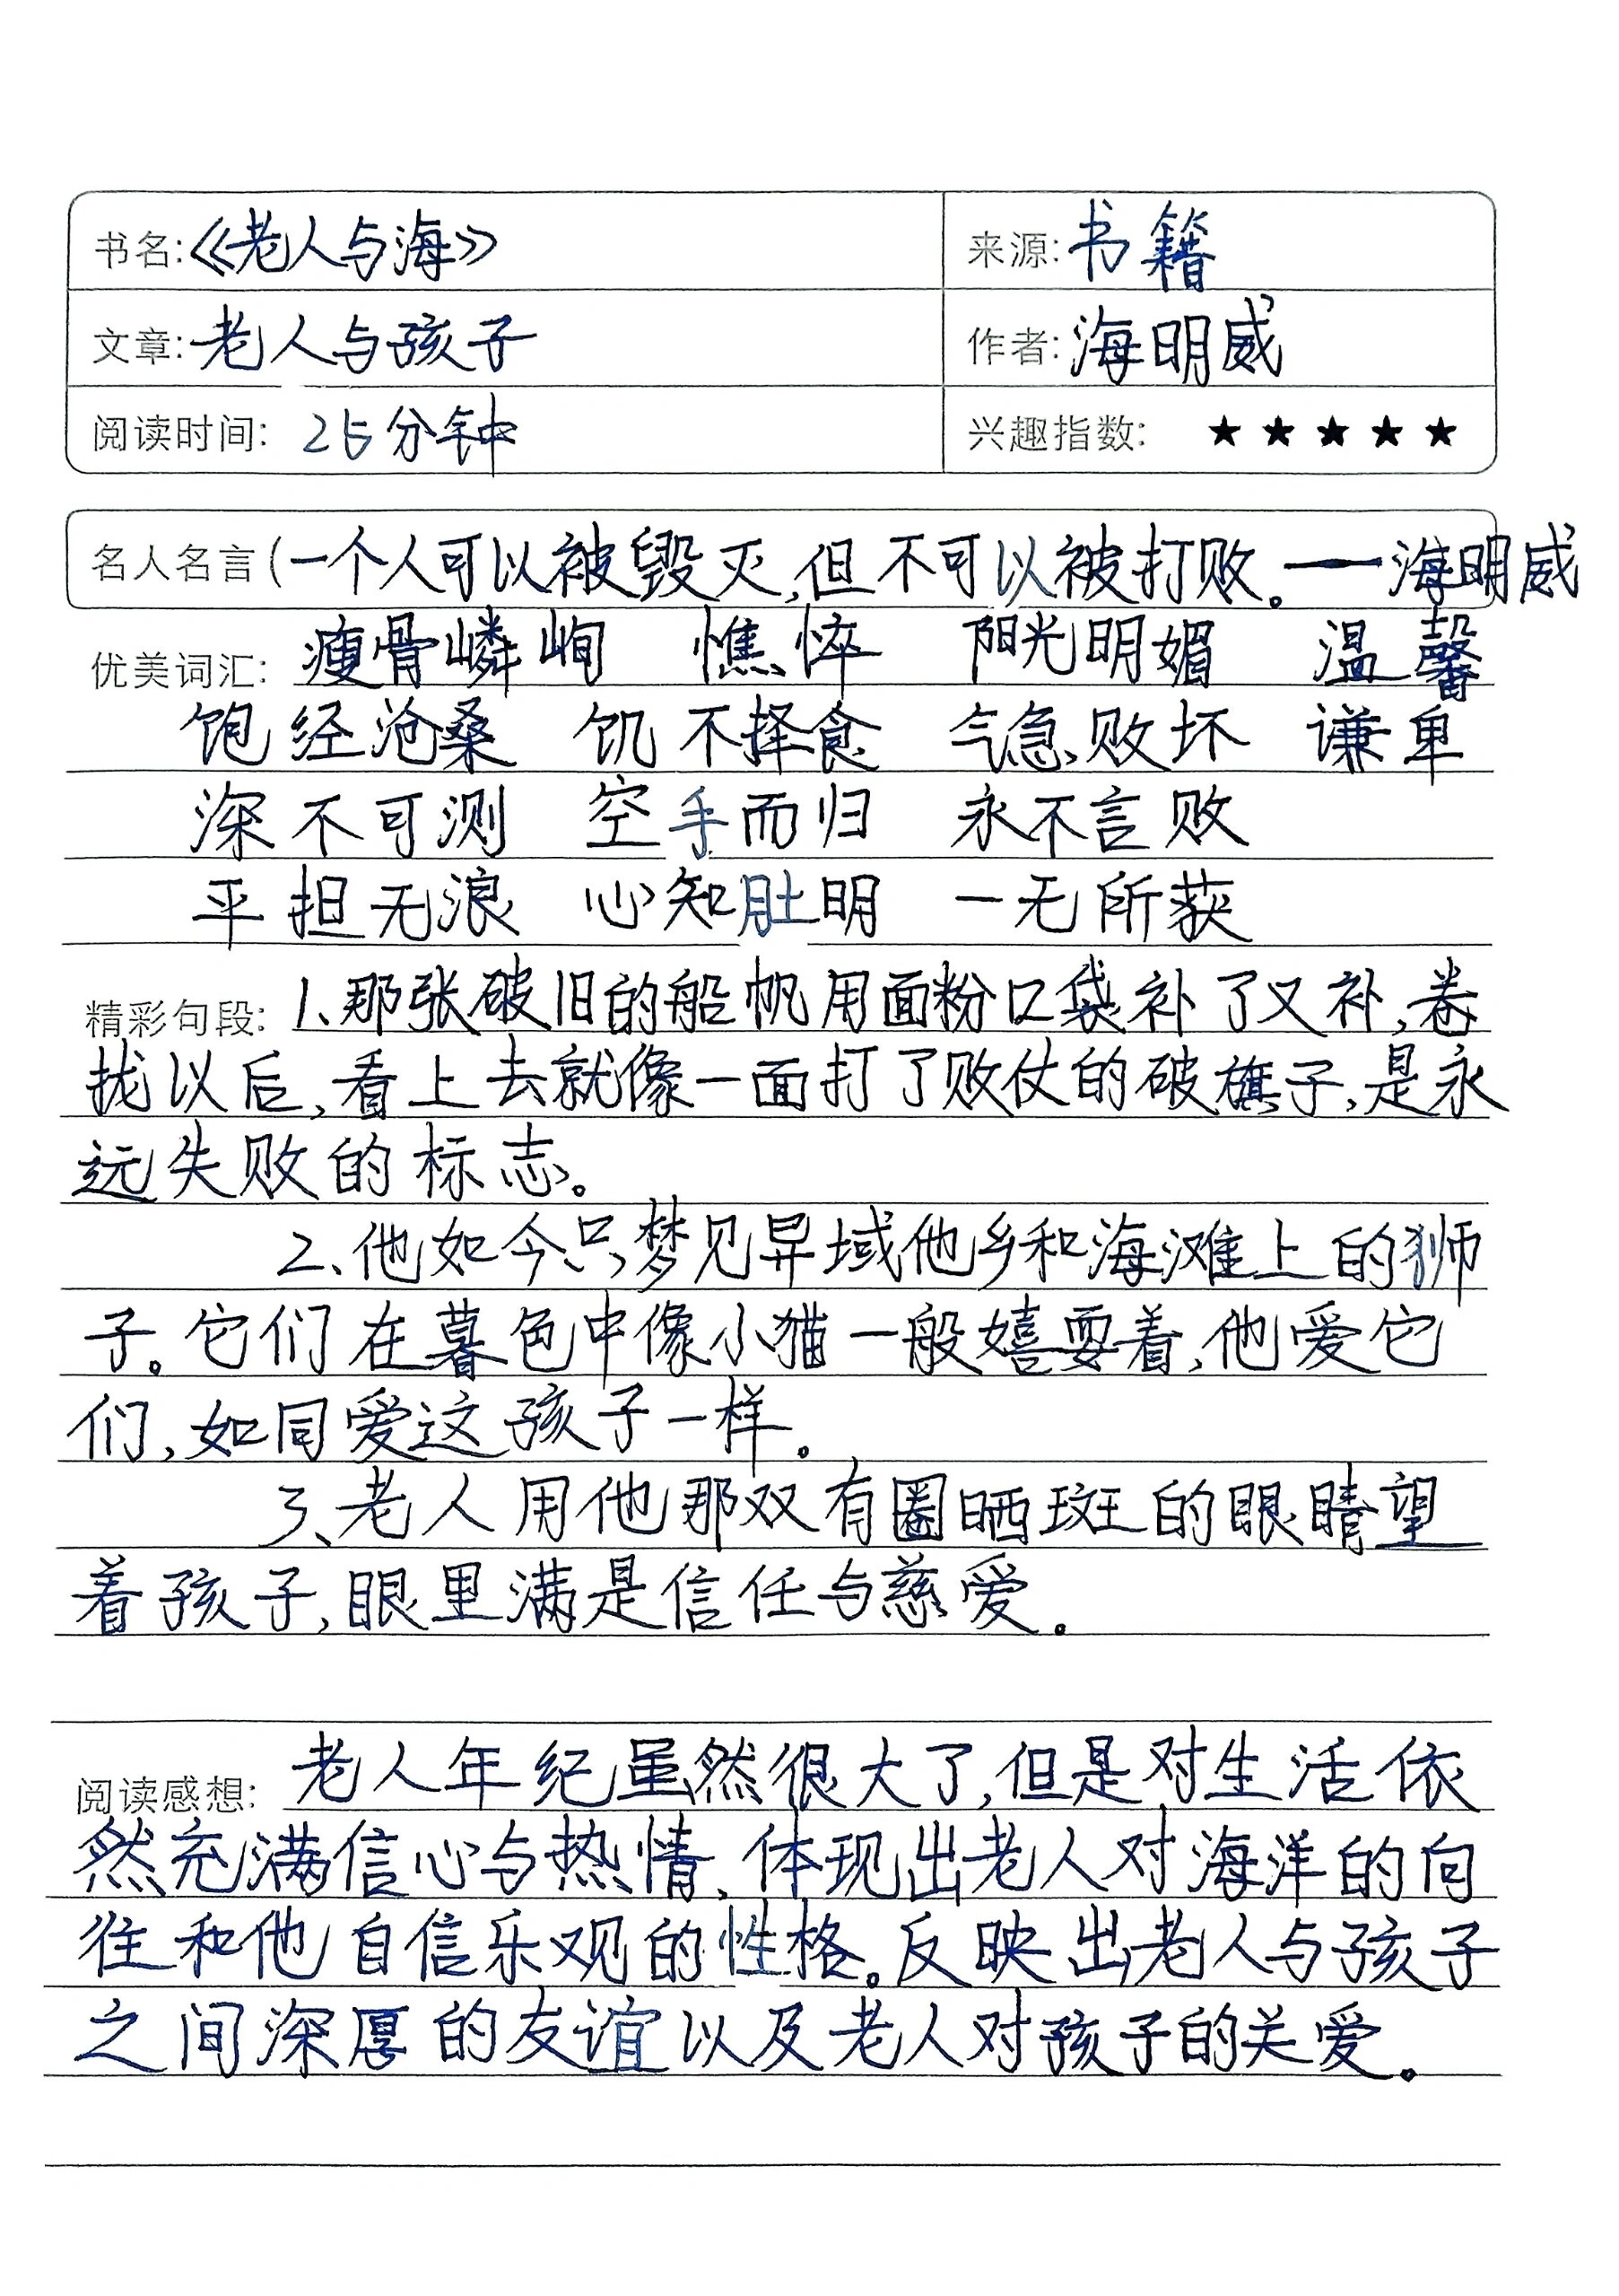 书名:《老人与海》 来源:书籍
文章:老人与孩子 作者:海明威
阅读时间: 25分钟 兴趣指数: ★ ★ ★ ★ ★
名人名言(一个人可以被毁灭,但不可以被打败。——海明威
优美词汇: 瘦骨嶙峋 憔悴 阳光明媚 温馨
饱经沧桑 饥不择食 气急败坏 谦卑
深不可测 空手而归 永不言败
平担无浪 心知肚明 一无所获
精彩句段: 1、那张破旧的船帆用面粉口袋补了又补,卷
拢以后,看上去就像一面打了败仗的破旗子,是永
远失败的标志。
2、他如今只梦见异域他乡和海滩上的狮
子。它们在暮色中像小猫一般嬉耍着,他爱它
们,如同爱这孩子一样。
3、老人用他那双有圈晒斑的眼睛望
着孩子,眼里满是信任与慈爱。
阅读感想: 老人年纪虽然很大了,但是对生活依
然充满信心与热情,体现出老人对海洋的向
往和他自信乐观的性格。反映出老人与孩子
之间深厚的友谊以及老人对孩子的关爱。